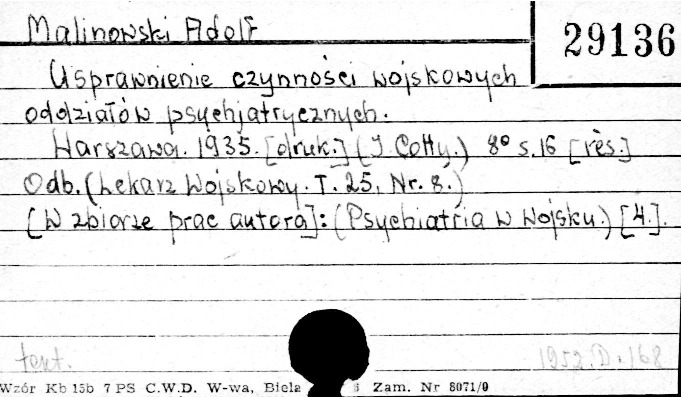 Malinowski Adolf
29136
Usprawnienie czynności wojskowych
oddziałów psychjatrycznych.
Warszawa. 1935. [druk.] (J. Cotty.) 8° s. 16 [rés.]
Odb. (Lekarz Wojskowy. T. 25, Nr. 8.)
[W zbiorze prac autora]: (Psychiatria w wojsku.) [4.].
1952.D.168
Wzór Kb 15b 7 PS C.W.D. W-wa, Biela Zam. Nr 8071/9